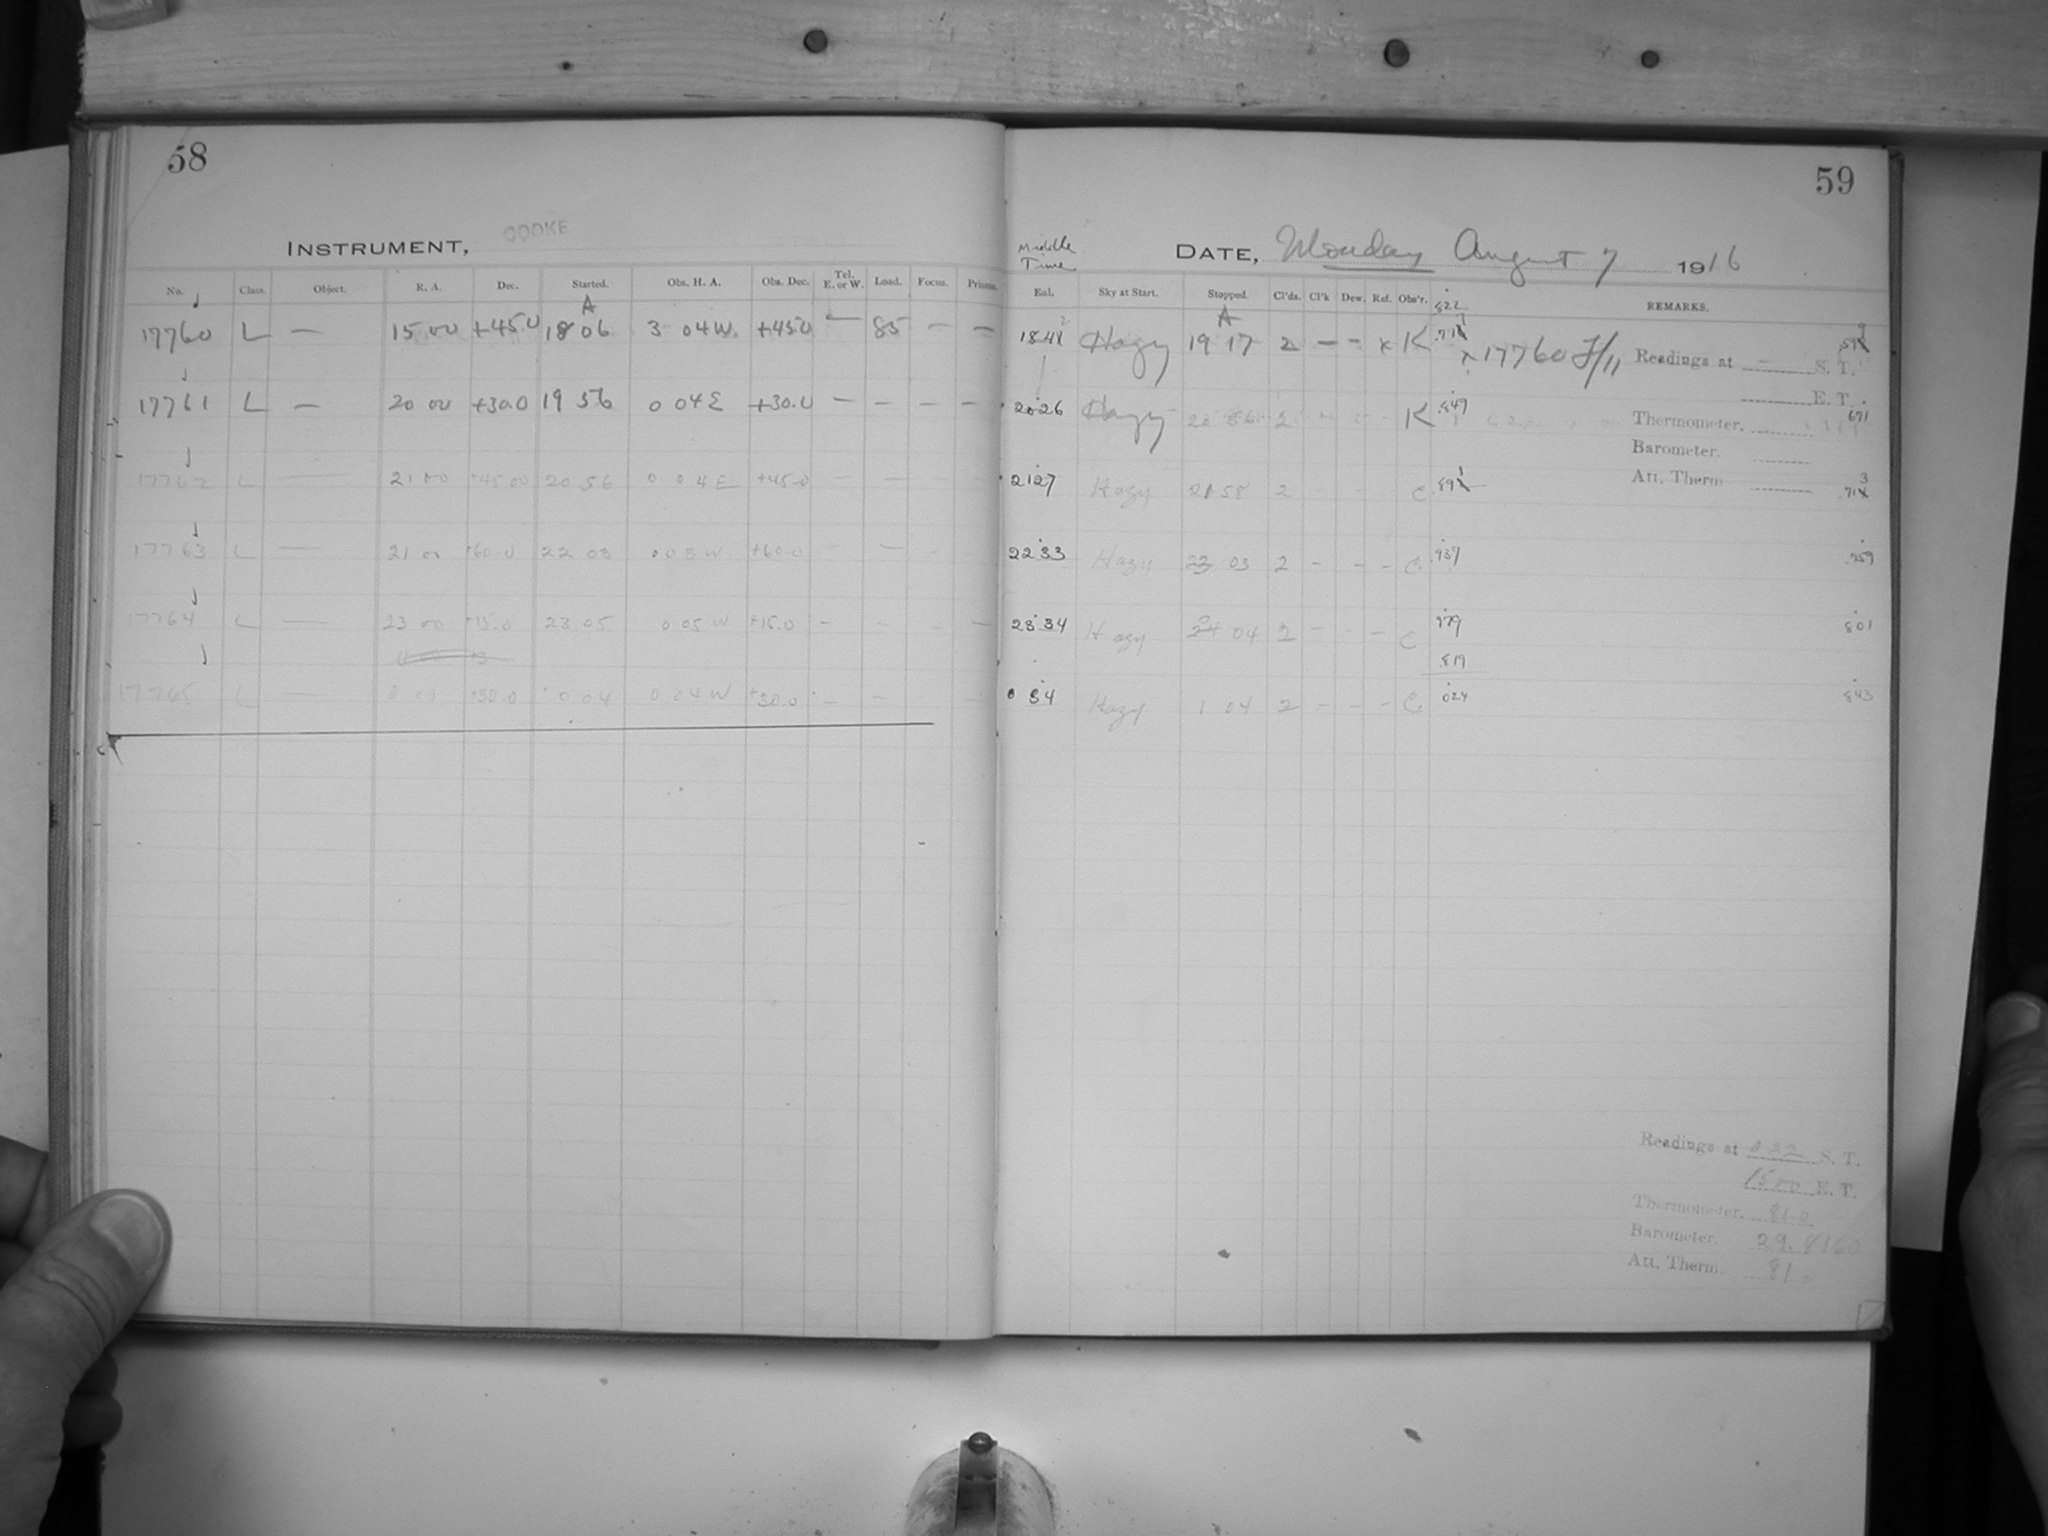 58
INSTRUMENT, COOKE
No. Class. Object. R. A. Dec. Started. Obs. H. A. Obs. Dec. Tel. E. or W. Load. Focus. Prisms.
A
17760 L — 15 00 +45.0 18 06 3 04 W. +45.0 — 85 — —
17761 L — 20 00 +30.0 19 56 0 04 E +30.0 — — — —
17762 L — 21 00 +45.00 20 56 0 04 E +45.0 — —
17763 L — 21 00 +60.0 22 03 0 03 W. +60.0 — —
17764 L — 23 00 +15.0 23 05 0 05 W +15.0 — — —
17765 L — 0 00 +30.0 0 04 0 04 W +30.0 — —
59
Middle Time
DATE, Monday August 7 1916
Eql. Sky at Start. Stopped. Cl'ds. Cl'k Dew. Ref. Obs'r. REMARKS.
.822
A
Hazy 19 17 2 — — x K x 17760 F/11
Readings at — S. T.
E. T.
20 26 Hazy 2 K .849
Thermometer. 671
Barometer.
21 27 Hazy 21 58 2 c
Att. Therm
22 33 Hazy 23 03 2 - - - c .937 .759
23 34 Hazy 04 2 - - - c 979 801
819
0 34 Hazy 1 04 2 - - - C 024 843
Readings at 0 22 S. T.
15 00 E. T.
Thermometer. 81.0
Barometer. 29.8160
Att. Therm. 81.